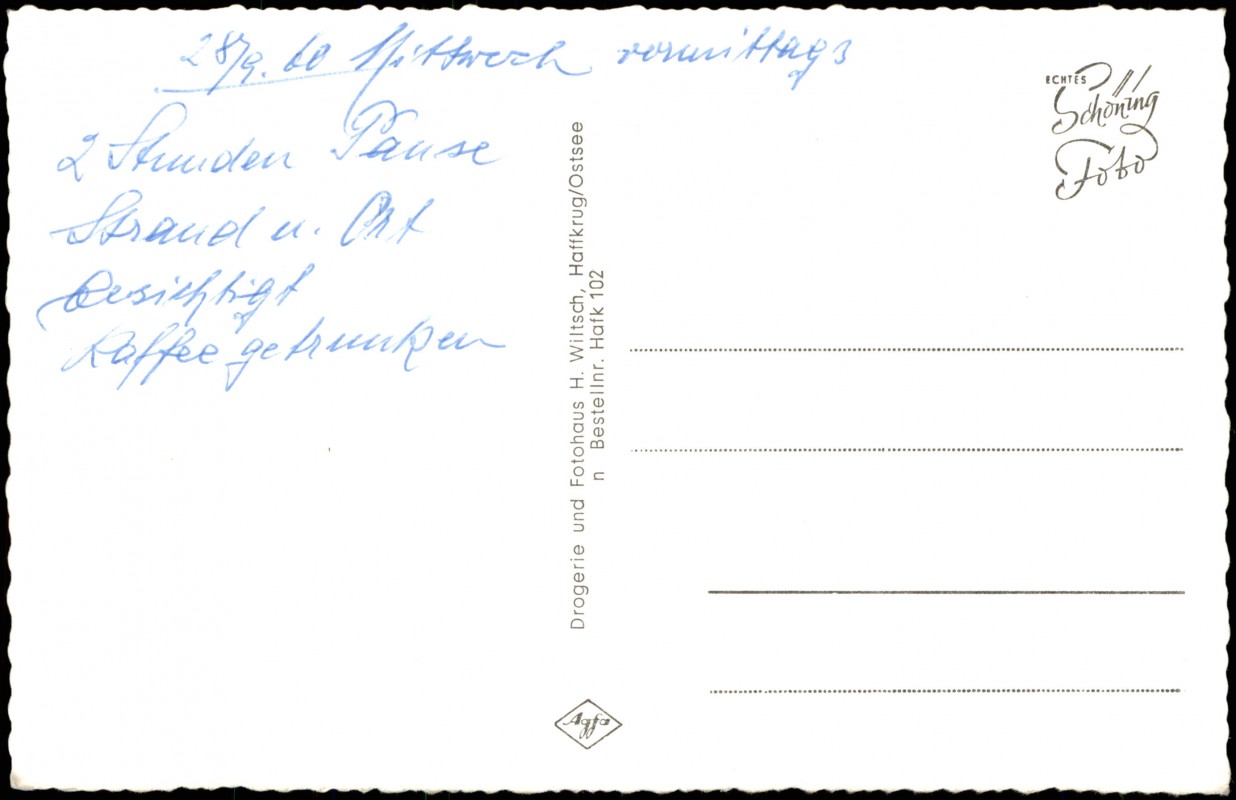 28/9. 60 Mittwoch vormittags
2 Stunden Pause
Strand u. Ort
besichtigt
Kaffee getrunken
Drogerie und Fotohaus H. Wiltsch, Haffkrug/Ostsee
n Bestellnr. Hafk 102
ECHTES
Schöning
Foto
Agfa